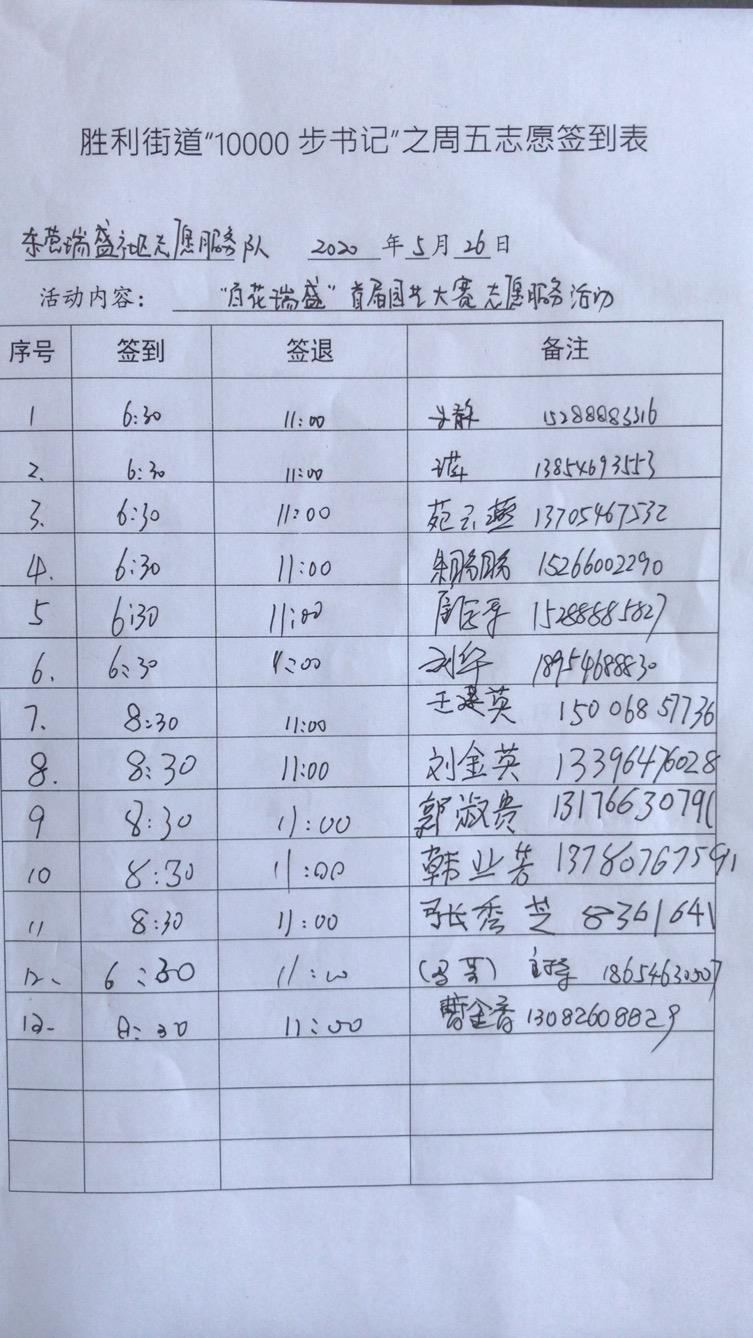 胜利街道"10000 步书记"之周五志愿签到表
东营瑞盛社区志愿服务队 2020 年 5 月 26 日
活动内容： "百花瑞盛"首届园艺大赛志愿服务活动
序号 签到 签退 备注
1 6:30 11:00 静 15288885316
2. 6:30 11:00 13854693553
3. 6:30 11:00 苑玉燕 13705467532
4. 6:30 11:00 朱鹏鹏 15266002290
5 6:30 11:00 15288885827
6. 6:30 11:00 刘华 18954688830
7. 8:30 11:00 王建英 15006857736
8. 8:30 11:00 刘金英 13396476028
9 8:30 11:00 郭淑贵 13176630791
10 8:30 11:00 韩业芳 13780767591
11 8:30 11:00 张秀芝 8361641
12、 6:30 11:00 18654630507
13. 8:30 11:00 曹金香 13082608829